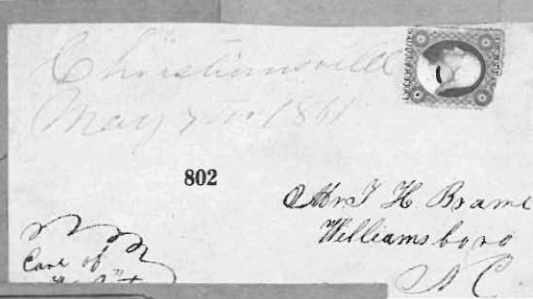 Christiansville
May 7th 1861
802
Mr J H Brame
Williamsboro
N C
Care of